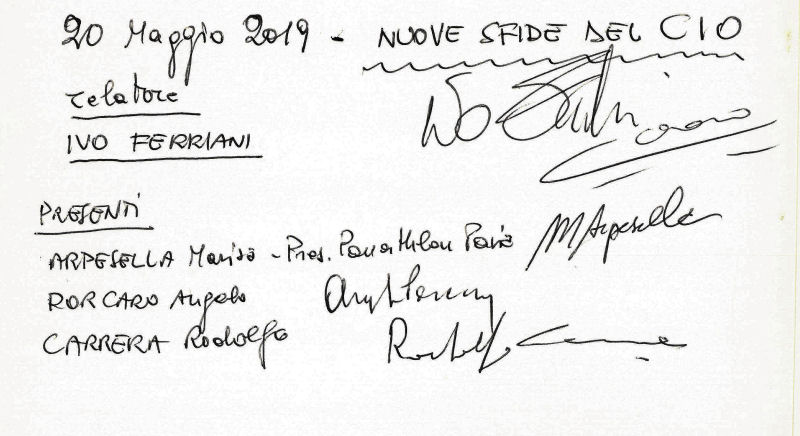 20 Maggio 2019 - NUOVE SFIDE DEL CIO
relatore
IVO FERRIANI
PRESENTI
ARPESELLA Marisa - Pres. Panathlon Pavia MArpesella
RORCARO Angelo
CARRERA Rodolfo